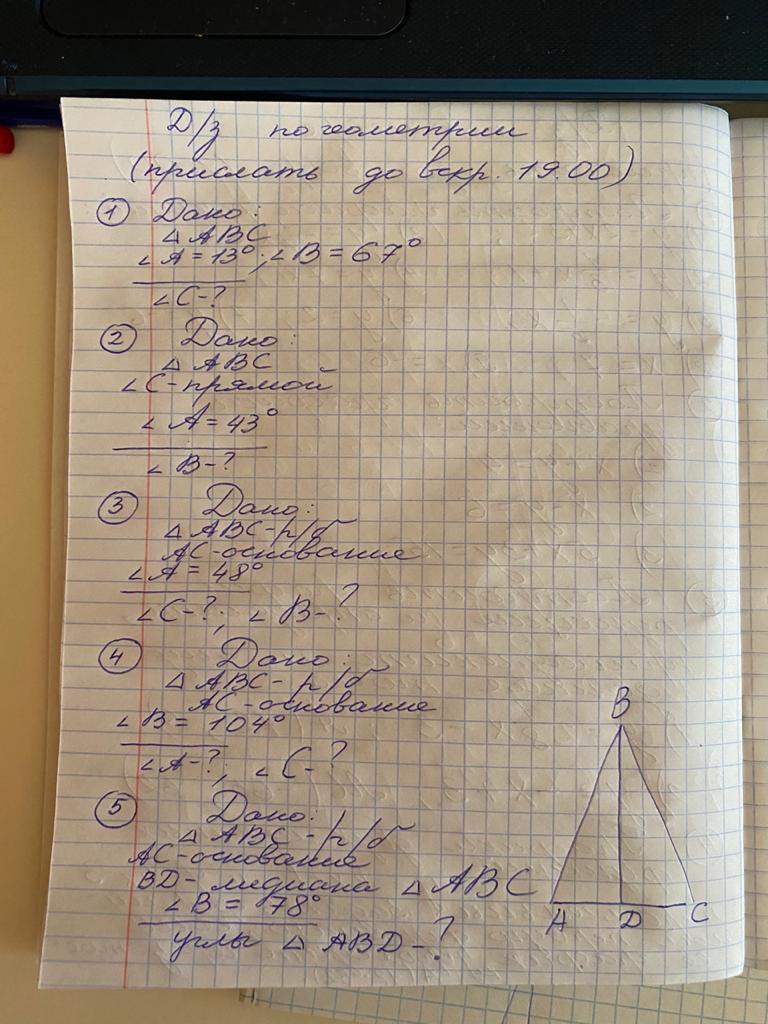 Д/з по геометрии
(прислать до вскр. 19.00)
① Дано:
△ ABC
∠A = 13°; ∠B = 67°
∠C-?
② Дано:
△ ABC
∠C-прямой
∠A = 43°
∠B-?
③ Дано:
△ ABC-р/б
AC-основание
∠A = 48°
∠C-?; ∠B-?
④ Дано:
△ ABC-р/б
AC-основание
∠B = 104°
∠A-?; ∠C-?
⑤ Дано:
△ ABC-р/б
AC-основание
BD-медиана △ABC
∠B = 78°
углы △ ABD-?
B
A D C